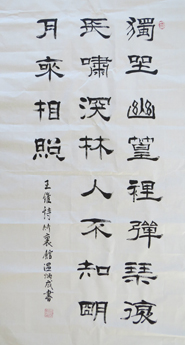 獨坐幽篁裡彈琴復
長嘯深林人不知明
月來相照
王維詩竹裏館溫成書